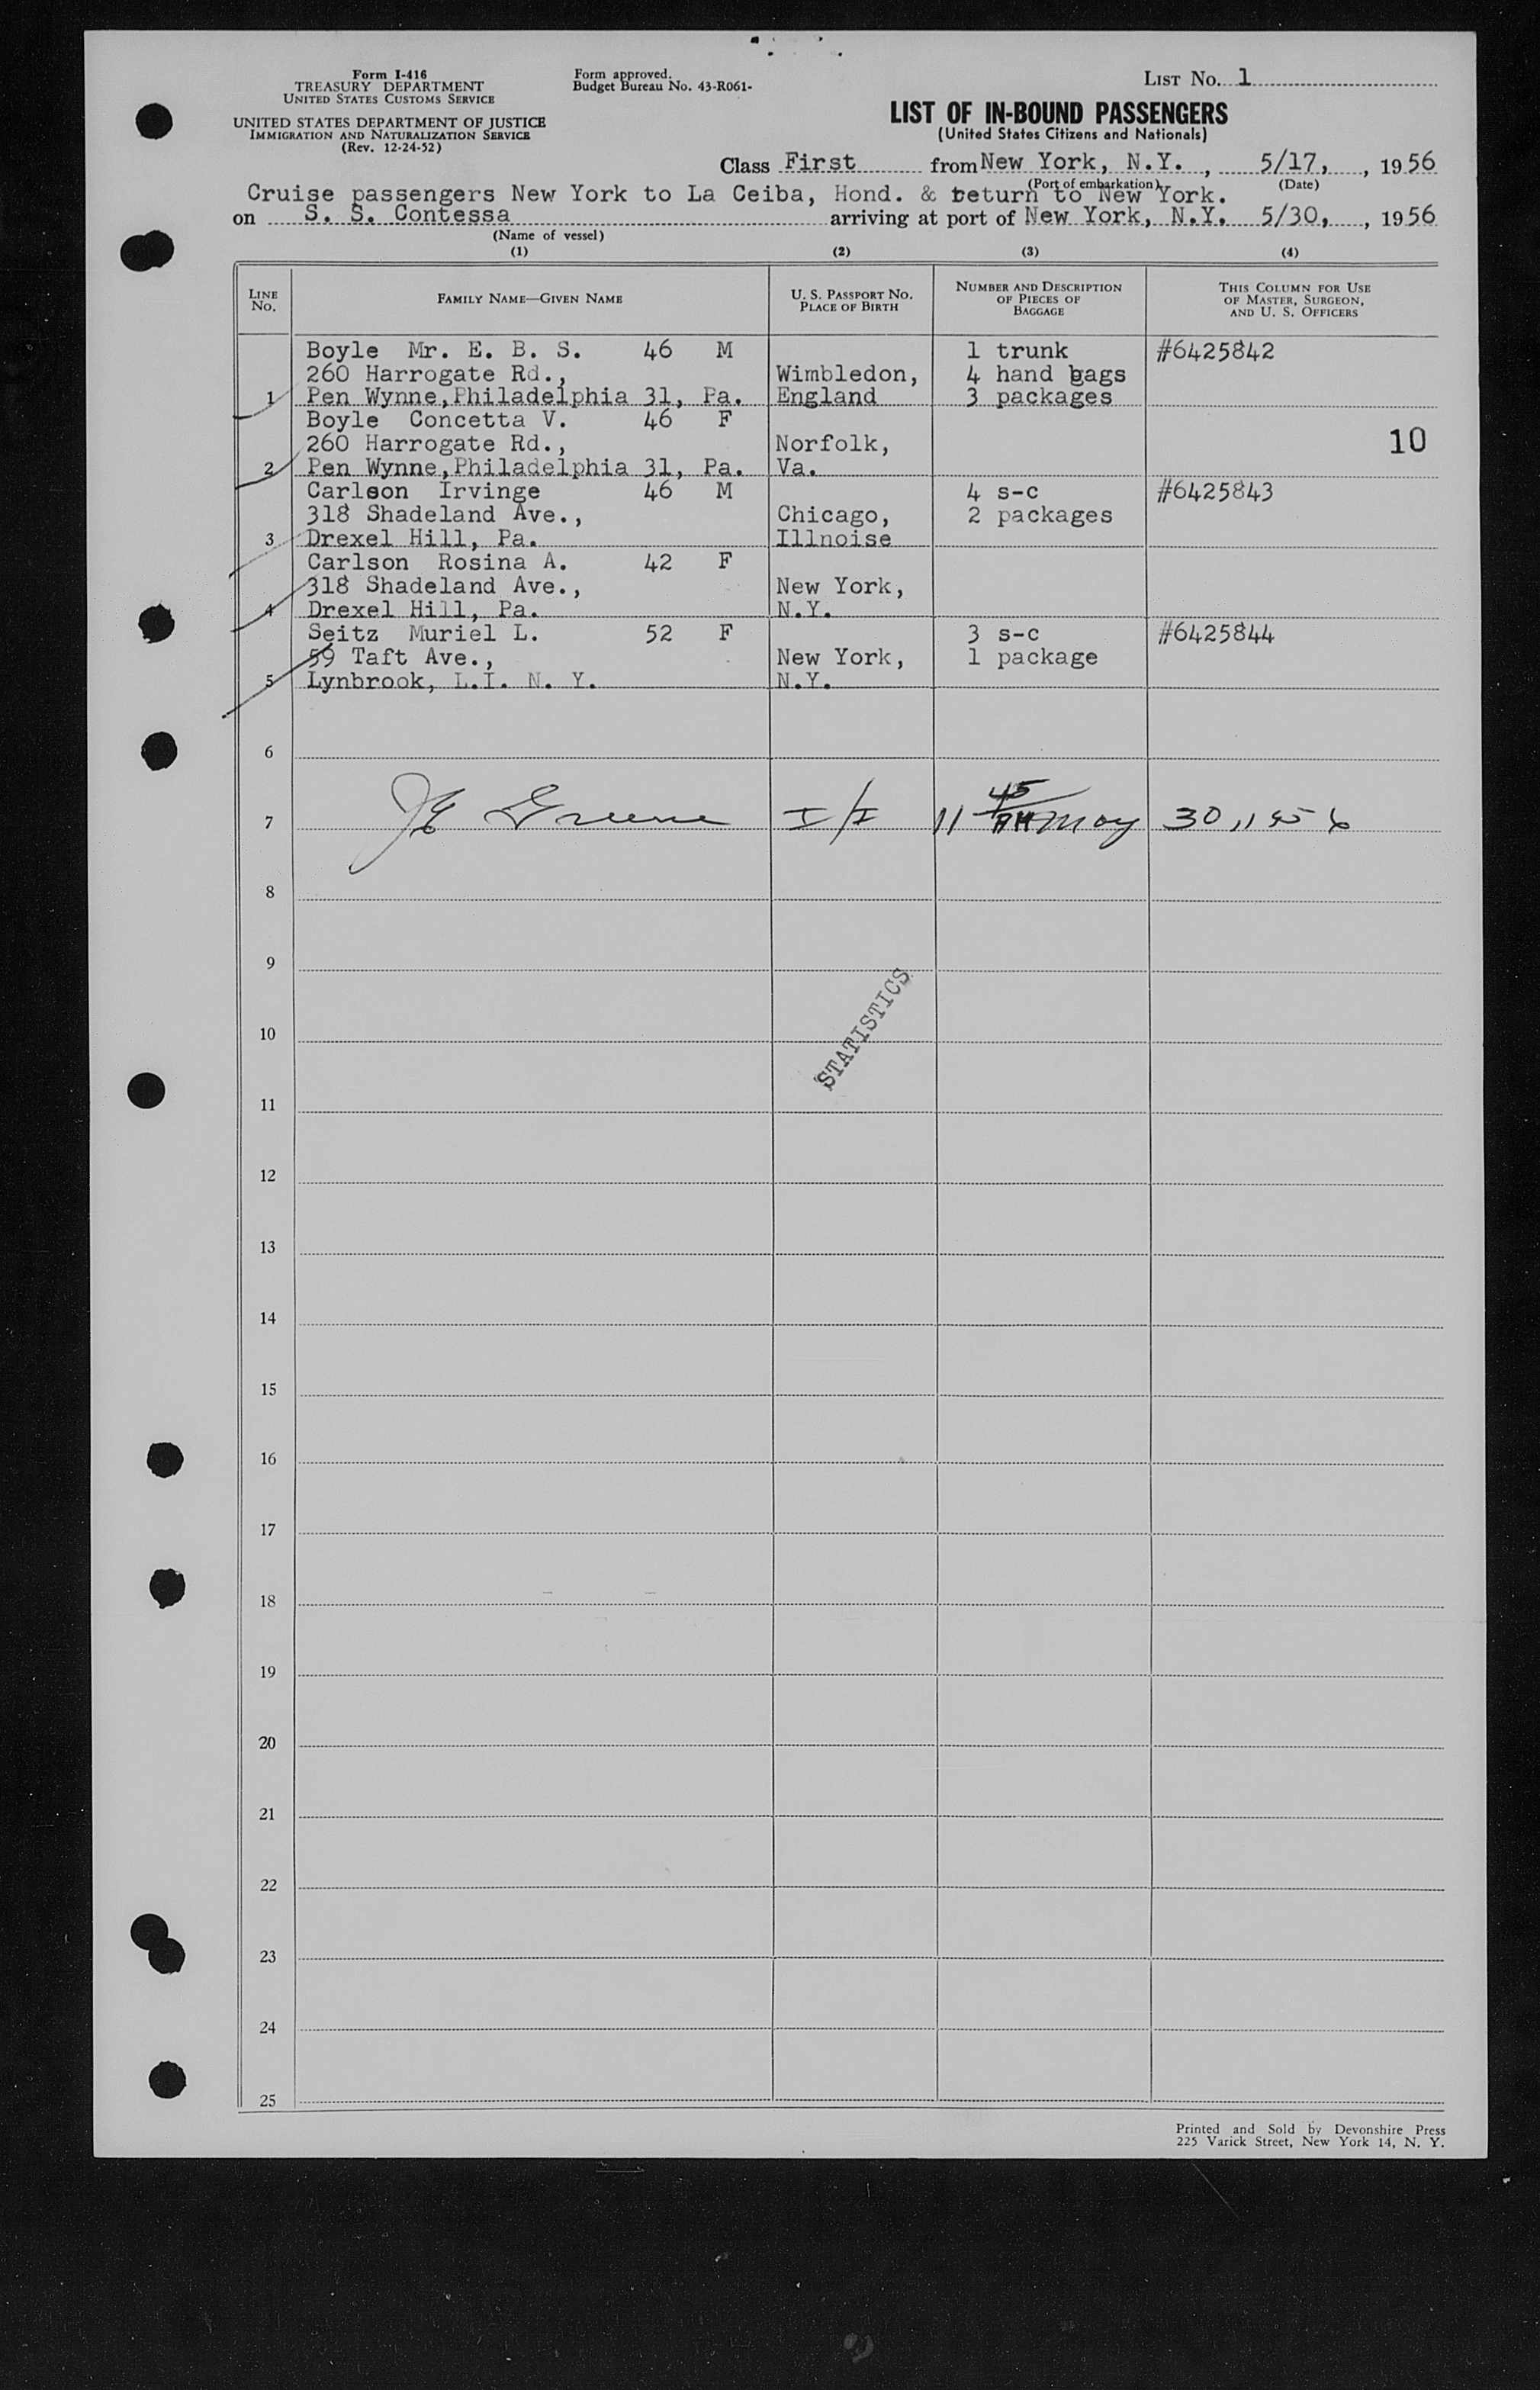 Form I-416
TREASURY DEPARTMENT
UNITED STATES CUSTOMS SERVICE
UNITED STATES DEPARTMENT OF JUSTICE
IMMIGRATION AND NATURALIZATION SERVICE
(Rev. 12-24-52)
Form approved.
Budget Bureau No. 43-R061-
LIST NO. 1
LIST OF IN-BOUND PASSENGERS
(United States Citizens and Nationals)
Class First from New York, N.Y., 5/17, , 1956
(Port of embarkation) (Date)
Cruise passengers New York to La Ceiba, Hond. & return to New York.
on S. S. Contessa arriving at port of New York, N.Y. 5/30, , 1956
(Name of vessel)
(1) (2) (3) (4)
LINE NO. FAMILY NAME—GIVEN NAME U. S. PASSPORT NO. PLACE OF BIRTH NUMBER AND DESCRIPTION OF PIECES OF BAGGAGE THIS COLUMN FOR USE OF MASTER, SURGEON, AND U. S. OFFICERS
Boyle Mr. E. B. S. 46 M 1 trunk #6425842
260 Harrogate Rd., Wimbledon, 4 hand bags
1 Pen Wynne,Philadelphia 31, Pa. England 3 packages
Boyle Concetta V. 46 F
260 Harrogate Rd., Norfolk, 10
2 Pen Wynne,Philadelphia 31, Pa. Va.
Carlson Irvinge 46 M 4 s-c #6425843
318 Shadeland Ave., Chicago, 2 packages
3 Drexel Hill, Pa. Illnoise
Carlson Rosina A. 42 F
318 Shadeland Ave., New York,
4 Drexel Hill, Pa. N.Y.
Seitz Muriel L. 52 F 3 s-c #6425844
59 Taft Ave., New York, 1 package
5 Lynbrook, L.I. N. Y. N.Y.
6
7 JE Greene I/I 11 45 AM May 30, 1956
8
9
STATISTICS
10
11
12
13
14
15
16
17
18
19
20
21
22
23
24
25
Printed and Sold by Devonshire Press
225 Varick Street, New York 14, N. Y.